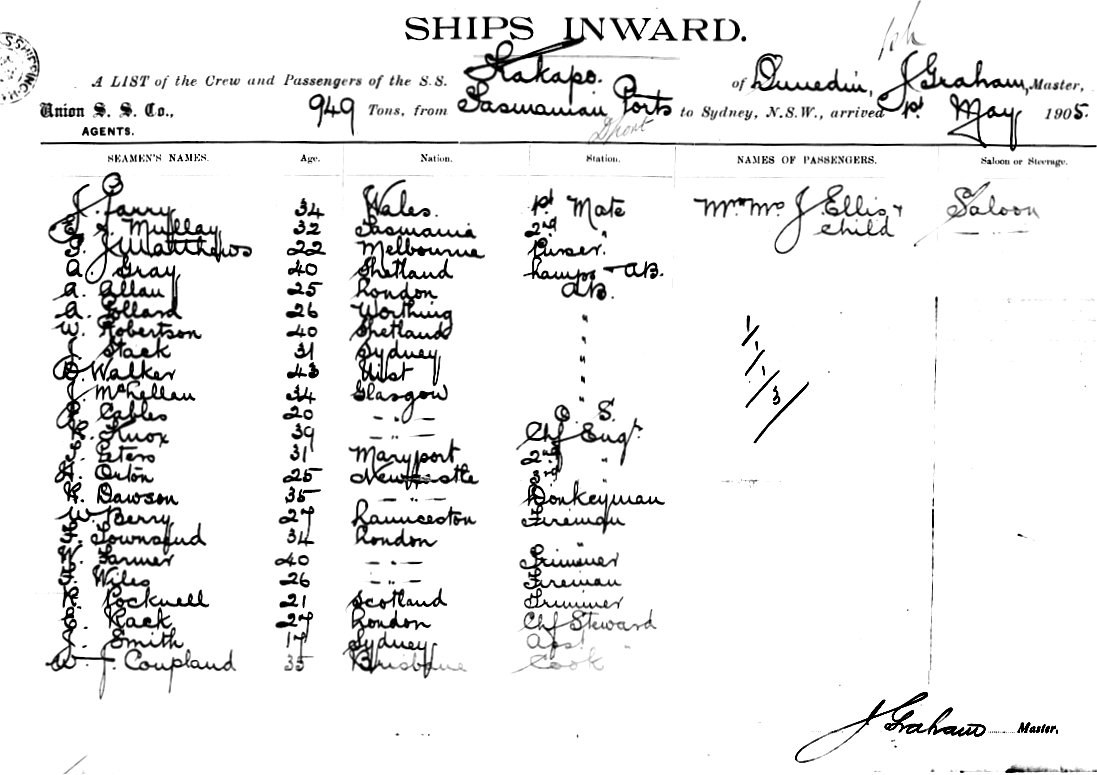 SHIPS INWARD.
A LIST of the Crew and Passengers of the S.S. Kakapo. of Dunedin, J Graham, Master,
Union S. S. Co., 949 Tons, from Tasmanian Ports to Sydney, N.S.W., arrived 1st May 1905.
AGENTS.
SEAMEN'S NAMES. Age. Nation. Station. NAMES OF PASSENGERS. Saloon or Steerage.
J. Garry 34 Wales. 1st Mate Mr Mrs J Ellis & Saloon
Mullay 32 Tasmania 2nd " child
J Matthews 22 Melbourne Purser.
A. Gray 40 Shetland Lamps - AB.
A. Allan 25 London AB.
A. Gollard 26 Worthing "
W. Robertson 40 Shetland "
J Stack 31 Sydney "
D Walker 43 Uist "
J. McLellan 34 Glasgow "
Cables 20 " O. S.
R. Knox 39 " Chf Engr.
J. Peters 31 Maryport 2nd "
H. Orton 25 Newcastle 3rd "
R. Dawson 35 " Donkeyman
W. Berry 27 Launceston Fireman
F. Townsend 34 London "
W. Farmer 40 " Trimmer
F. Wiles 26 " Fireman
R. Pocknell 21 Scotland Trimmer
E. Rack 27 London Chf Steward
J. Smith 17 Sydney Asst "
W. J. Coupland 35 Brisbane Cook
1/
1/
1/
3/
J Graham Master.